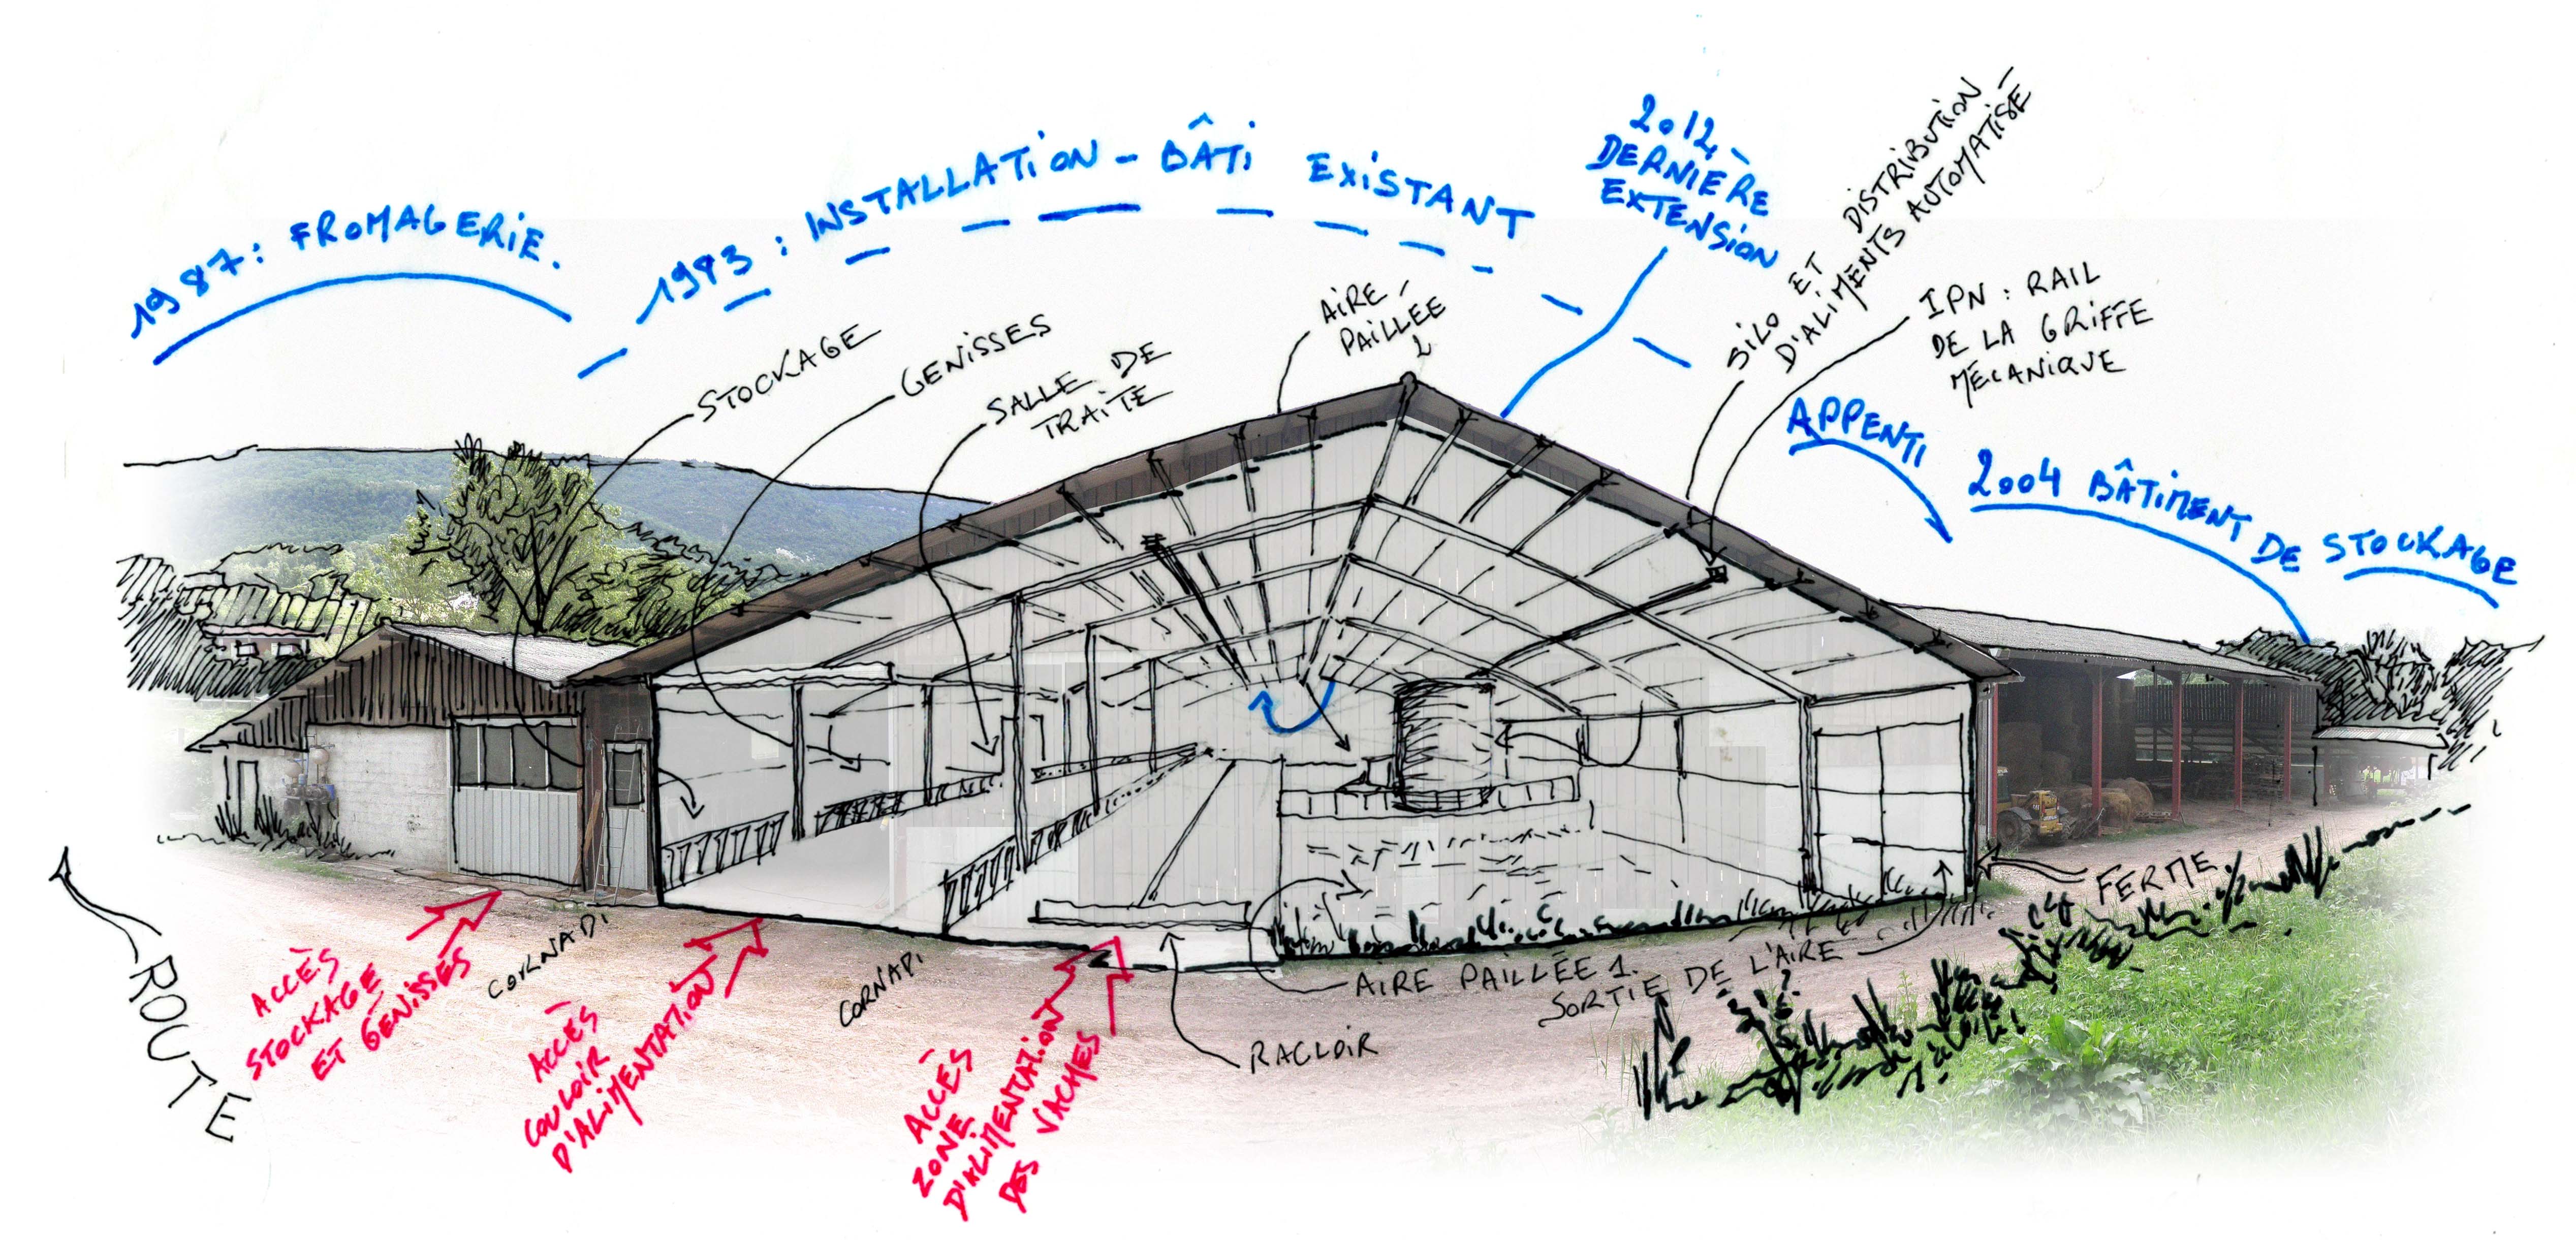 1987: FROMAGERIE.
1983 : INSTALLATION - BÂTI EXISTANT
2012
DERNIÈRE
EXTENSION
SILO ET DISTRIBUTION
D'ALIMENTS AUTOMATISÉ
IPN : RAIL
DE LA GRIFFE
MÉCANIQUE
APPENTI
2004 BÂTIMENT DE STOCKAGE
STOCKAGE
GENISSES
SALLE DE
TRAITE
AIRE
PAILLÉE
2
ROUTE
ACCÈS
STOCKAGE
ET GÉNISSES
CORNADI
ACCÈS
COULOIR
D'ALIMENTATION
CORNADI
ACCÈS
ZONE
D'ALIMENTATION
DES VACHES
RACLOIR
AIRE PAILLÉE 1.
SORTIE DE L'AIRE
FERME